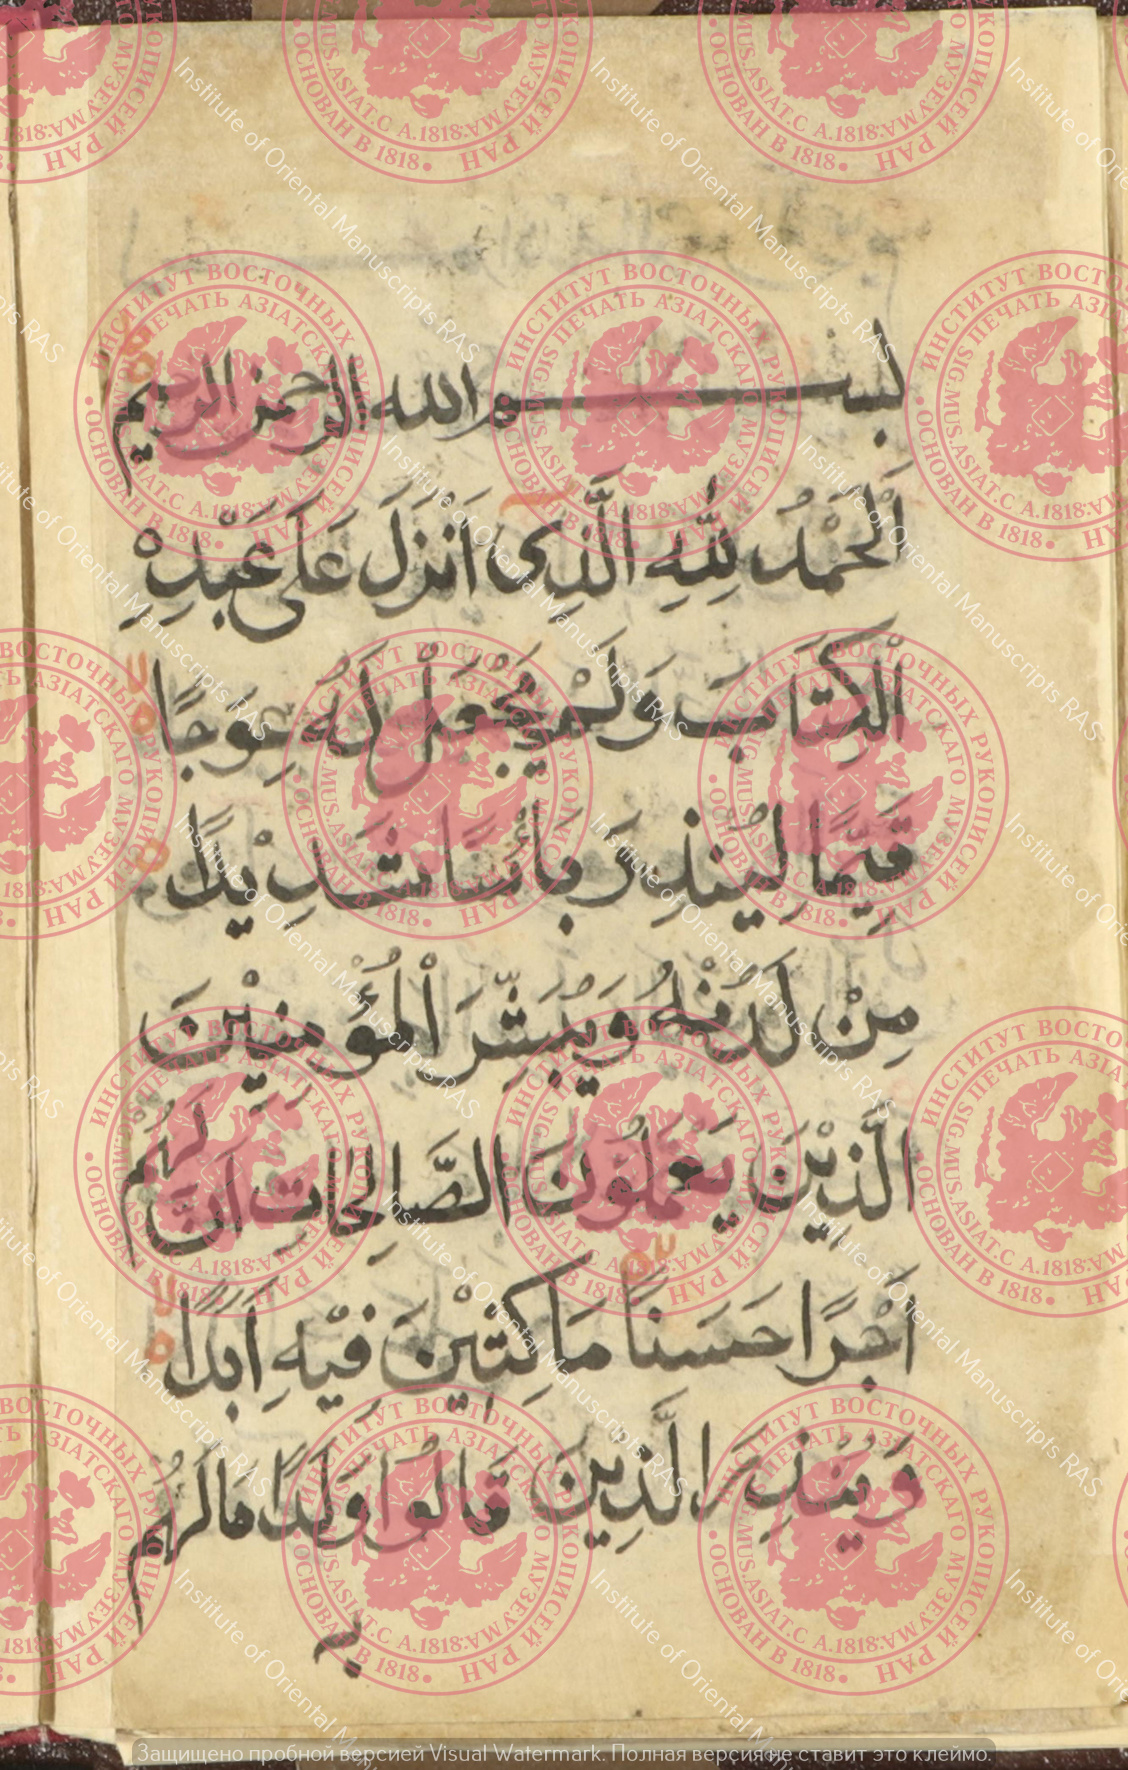 بســـــــم الله الرحمن الرحيم
اَلْحَمْدُ لِلّٰهِ الَّذِى اَنْزَلَ عَلَى عَبْدِهِ
الْكِتَابَ وَلَمْ يَجْعَلْ لَهُ عِوَجًا
قَيِّمًا لِيُنْذِرَ بَأْسًا شَدِيْدًا
مِنْ لَدُنْهُ وَيُبَشِّرَ الْمُؤْمِنِيْنَ
الَّذِيْنَ يَعْمَلُوْنَ الصَّالِحَاتِ اَنَّ لَهُمْ
اَجْرًا حَسَنًا مَاكِثِيْنَ فِيْهِ اَبَدًا
وَيُنْذِرَ الَّذِيْنَ قَالُوا وَلَدًا مَالَهُمْ
به
ИНСТИТУТ ВОСТОЧНЫХ РУКОПИСЕЙ РАН
ОСНОВАН В 1818
ПЕЧАТЬ АЗІАТСКАГО МУЗЕУМА
SIG.MUS.ASIAT.C A.1818
Institute of Oriental Manuscripts RAS
Защищено пробной версией Visual Watermark. Полная версия не ставит это клеймо.